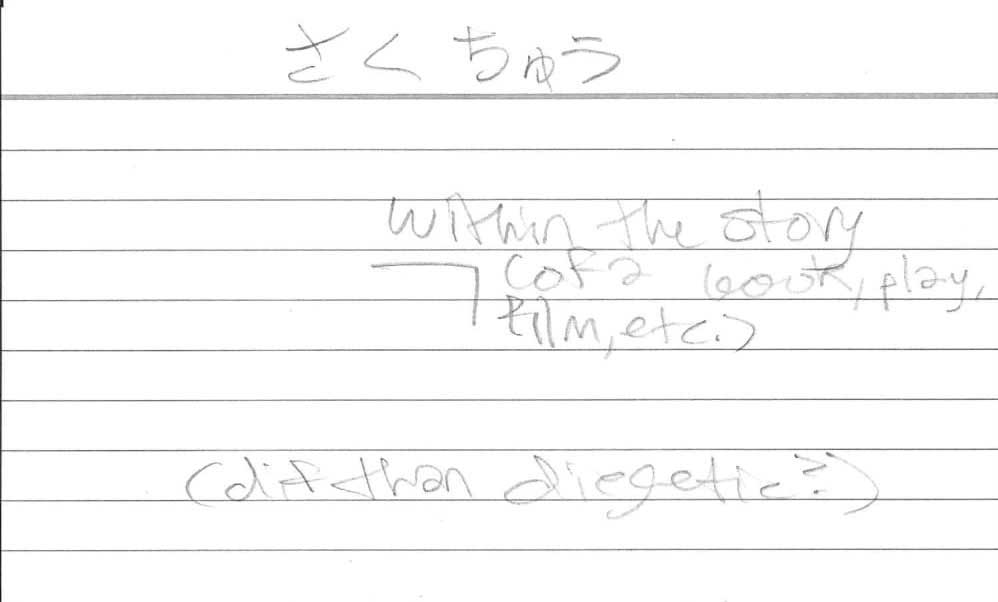 さくちゅう
within the story
(of a book, play,
film, etc.)
(dif than diegetic?)